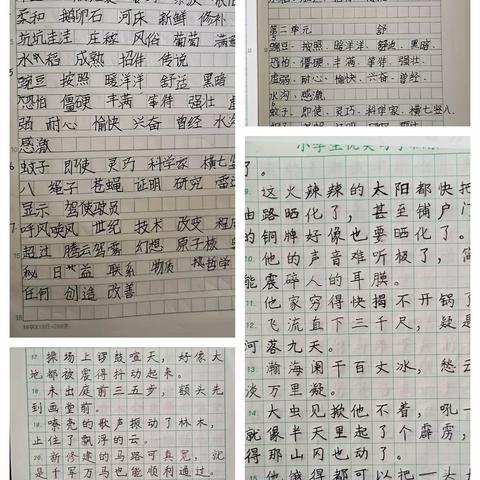 柔和 鹅卵石 河床 新鲜 修补
坑坑洼洼 庄稼 风俗 葡萄
水稻 成熟 招伴 传说
豌豆 按照 暖洋洋 舒适 黑暗
恐怕 僵硬 丰满 等待 强壮
弱 耐心 愉快 兴奋 曾经
感激
蚊子 即使 灵巧 科学家 横七竖
八 绳子 苍蝇 证明 研究
显示 驾驶员
呼风唤雨 世纪 技术 改变
超过 腾云驾雾 幻想 原子核
秘 日益 联系 物质 哲学
任何 创造 改善
第二单元 舒
豌豆、按照、暖洋洋、舒适、黑暗、
恐怕、僵硬、丰满、等待、强壮、
虚弱、耐心、愉快、兴奋、曾经、
水沟、感激
蚊子、即使、灵巧、科学家、横七竖八、
了。
9. 这火辣辣的太阳都快把
由路晒化了，甚至铺户门
的铜牌好像也要晒化了。
10. 他的声音难听极了，简
能震碎人的耳膜。
11. 他家穷得快揭不开锅了
12. 飞流直下三千尺，疑是
河落九天。
13. 瀚海阑干百丈冰，愁云
淡万里凝。
14. 大虫见掀他不着，吼一
就像半天里起了个霹雳，
得那山冈也动了。
15. 他饿得都可以把一头
17. 操场上锣鼓喧天，好像大
地都被震得抖动起来。
18. 未出庭前三五步，额头先
到画堂前。
19. 嘹亮的歌声振动了林木，
止住了飘浮的云。
20. 新修建的马路可真宽，就
是千军万马也能顺利通过。